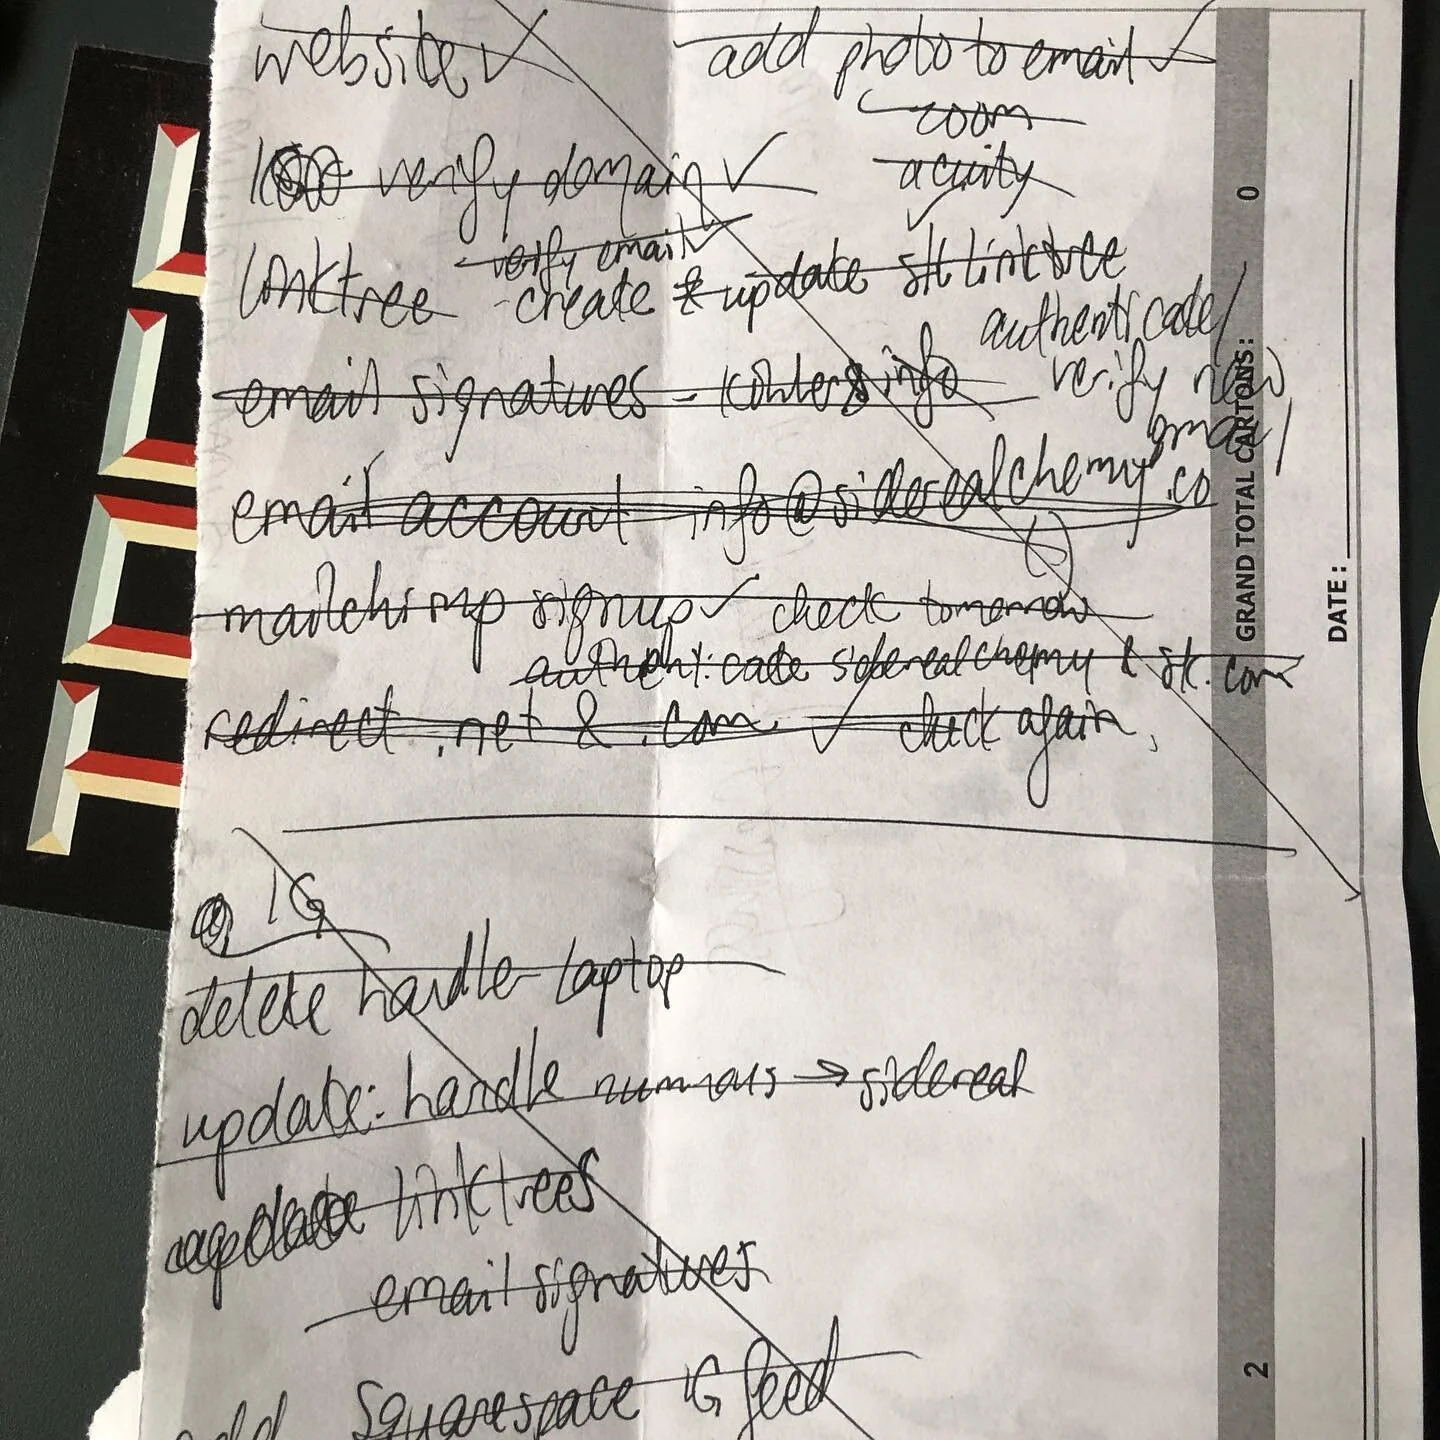 website ✓
add photo to email ✓
zoom
acuity
verify domain ✓
✓
verify email ✓
linktree - create & update stk linktree
authenticate/
verify new
email signatures - info
gmail
email account info@siderealchemy.co
mailchimp signup ✓ check tomorrow
authenticate siderealchemy & stk.com
redirect .net & .com ✓ check again
IG
delete handle laptop
update: handle → sidereal
update linktrees
email signatures
add squarespace IG feed
GRAND TOTAL CARTONS:
0
DATE:
2